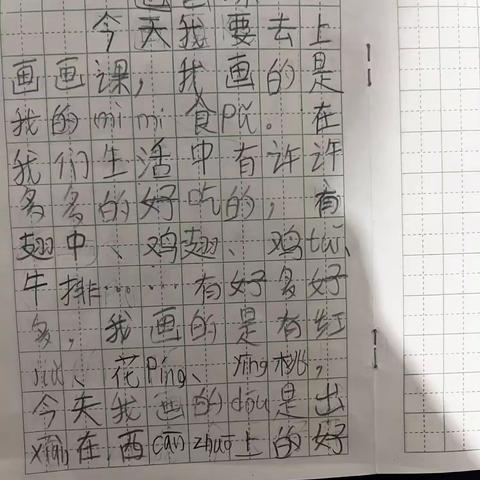 今天我要去上
画画课，我画的是
我的mì mì食pǔ。在
我们生活中有许许
多多的好吃的，有
翅中、鸡翅、鸡tuǐ、
牛排……有好多好
多，我画的是有红
、花píng、yīng桃，
今天我画的dōu是出
xiàn在西cān zhuō上的好